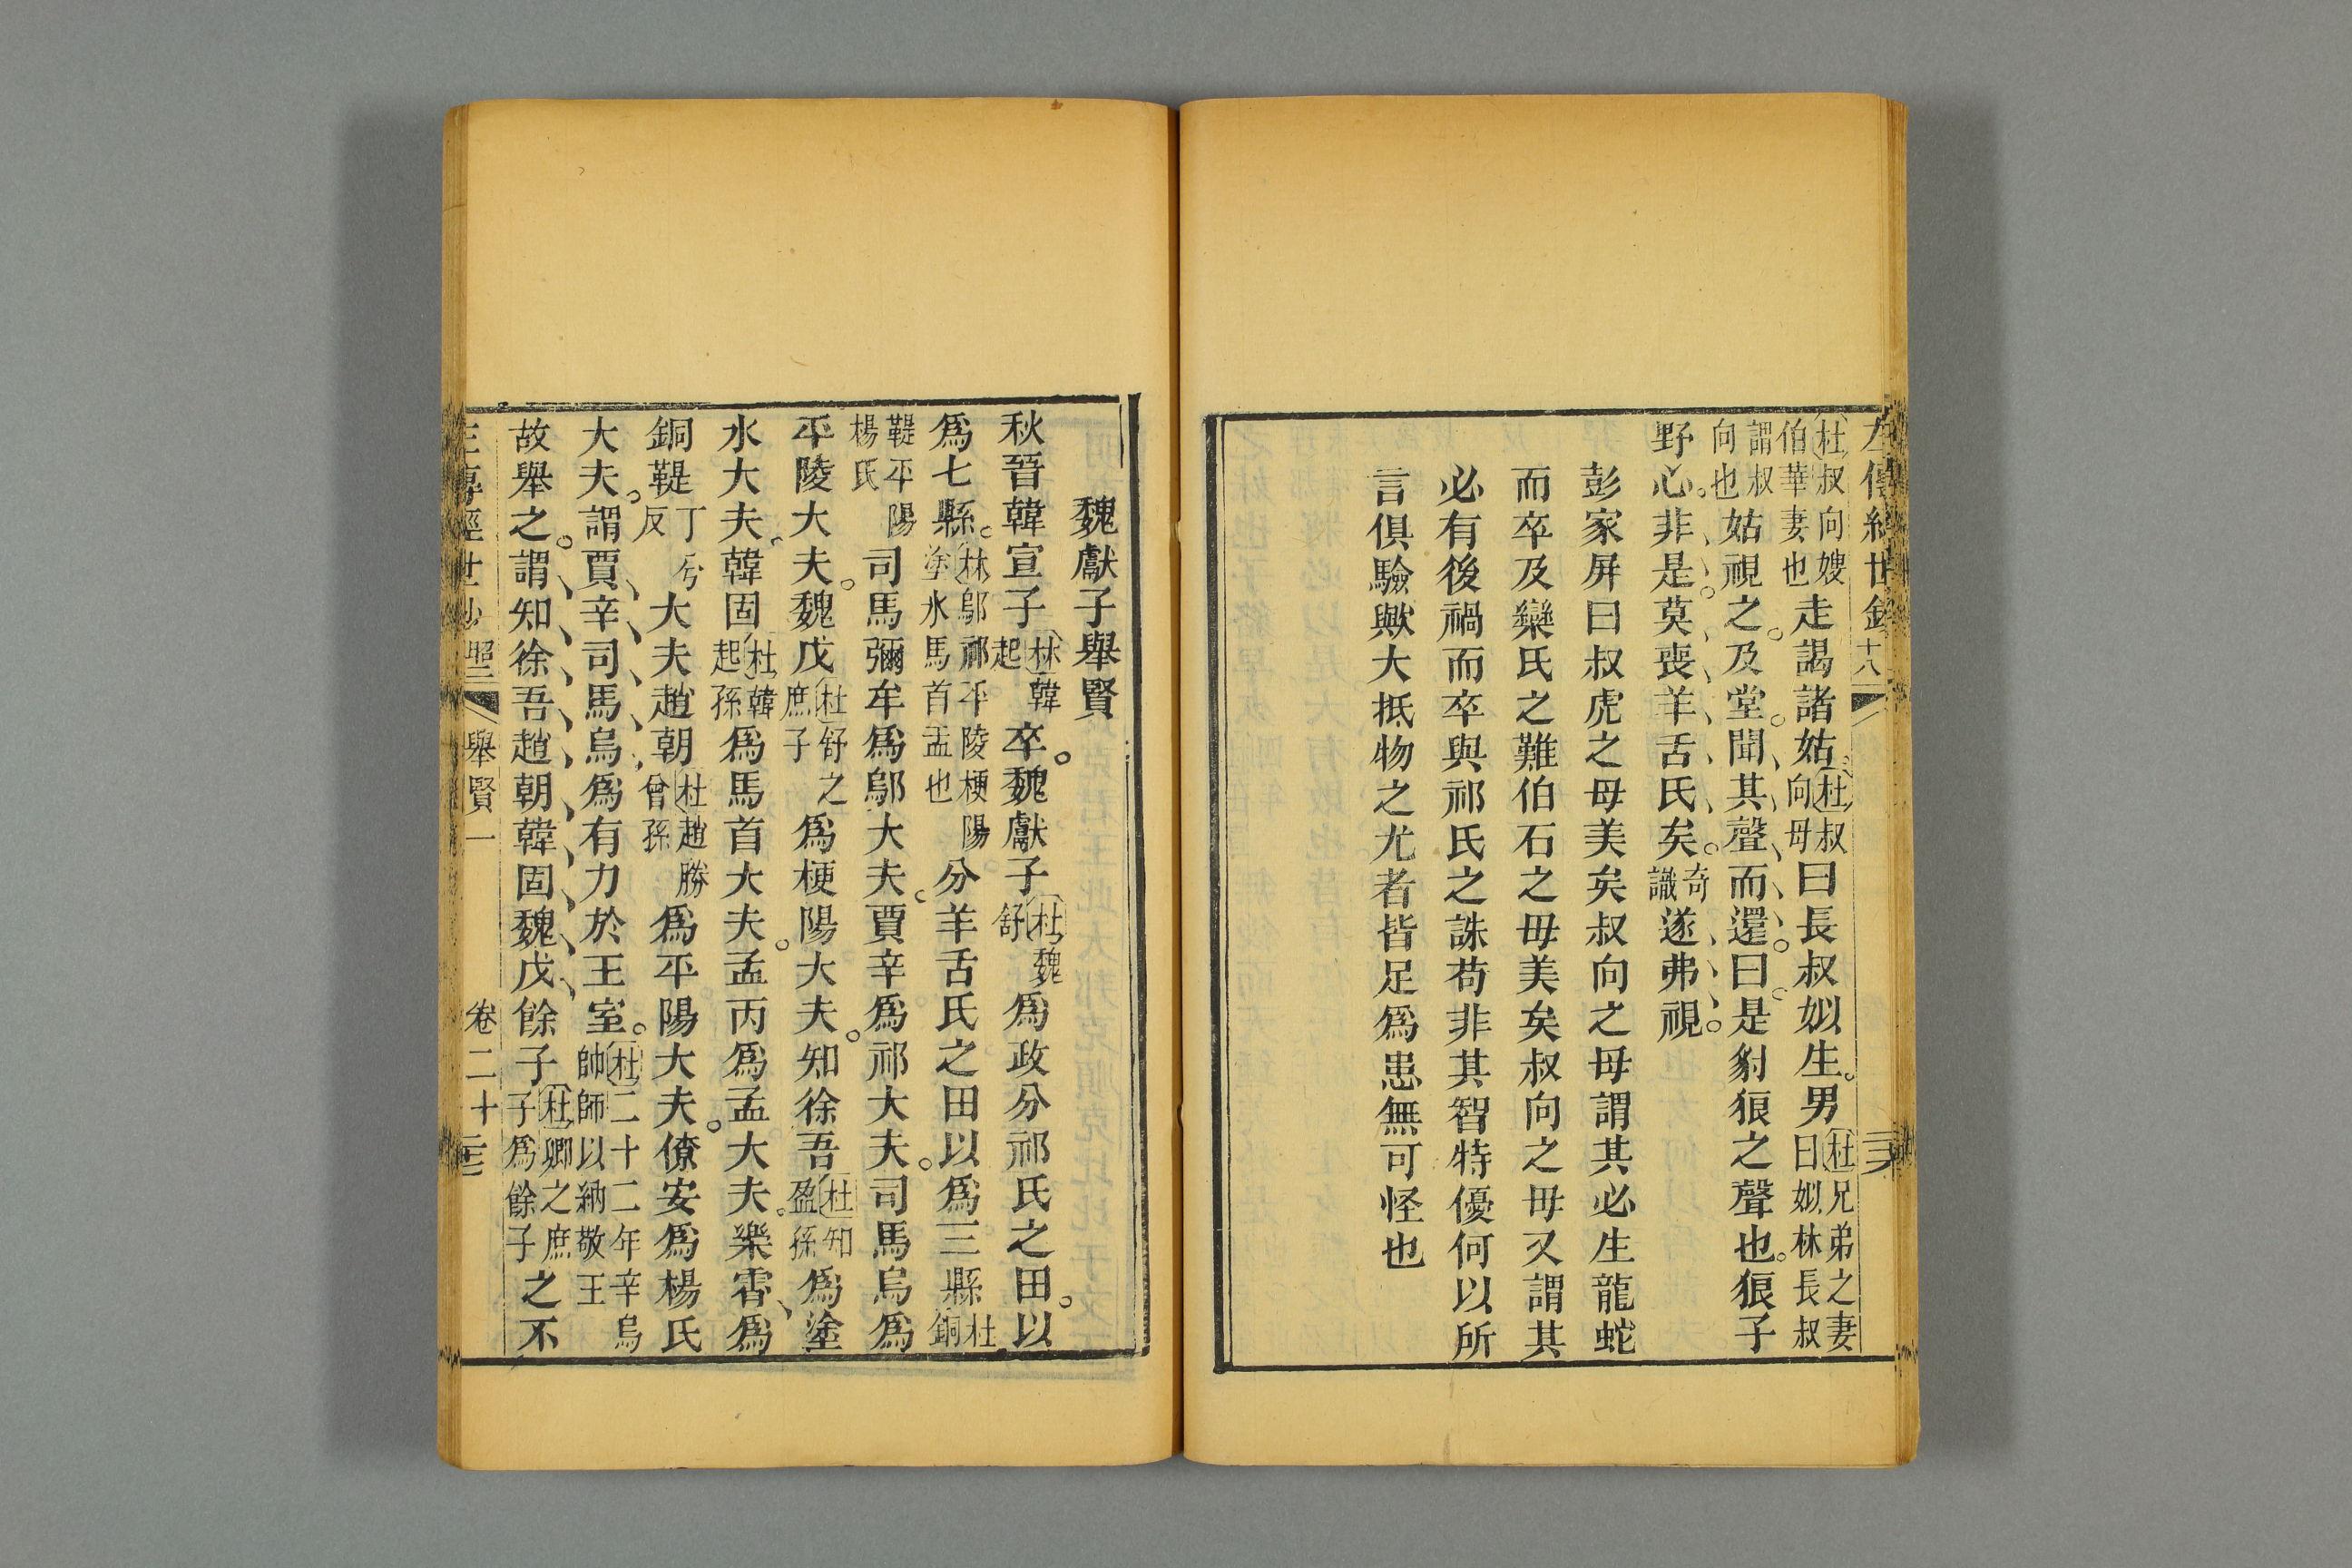 左傳經世鈔十八
杜叔向嫂伯華妻也走謁諸姑杜叔向母曰長叔姒生。男杜兄弟之妻曰姒林長叔
謂叔向也姑視之。及堂。聞其聲而還。曰。是豺狼之聲也。狼子
野心。非是。莫喪羊舌氏矣。奇識遂弗視。
彭家屏曰叔虎之母美矣叔向之母謂其必生龍蛇
而卒及欒氏之難伯石之母美矣叔向之母又謂其
必有後禍而卒與祁氏之誅苟非其智特優何以所
言俱驗歟大抵物之尤者皆足爲患無可怪也
魏獻子舉賢
秋晉韓宣子林韓起卒。魏獻子杜魏舒爲政分祁氏之田。以
爲七縣。林鄔祁平陵梗陽塗水馬首盂也分羊舌氏之田以爲三縣杜銅
鞮平陽楊氏司馬彌牟爲鄔大夫。賈辛爲祁大夫。司馬烏爲
平陵大夫。魏戊杜舒之庶子爲梗陽大夫。知徐吾杜知盈孫爲塗
水大夫。韓固杜韓起孫爲馬首大夫。孟丙爲盂大夫。樂霄爲
銅鞮丁兮反大夫趙朝杜趙勝曾孫爲平陽大夫。僚安爲楊氏
大夫。謂賈辛司馬烏爲有力於王室。杜二十二年辛烏帥師以納敬王
故舉之。謂知徐吾趙朝韓固魏戊餘子杜卿之庶子爲餘子之不
左傳經世鈔 昭二 舉賢一 卷二十